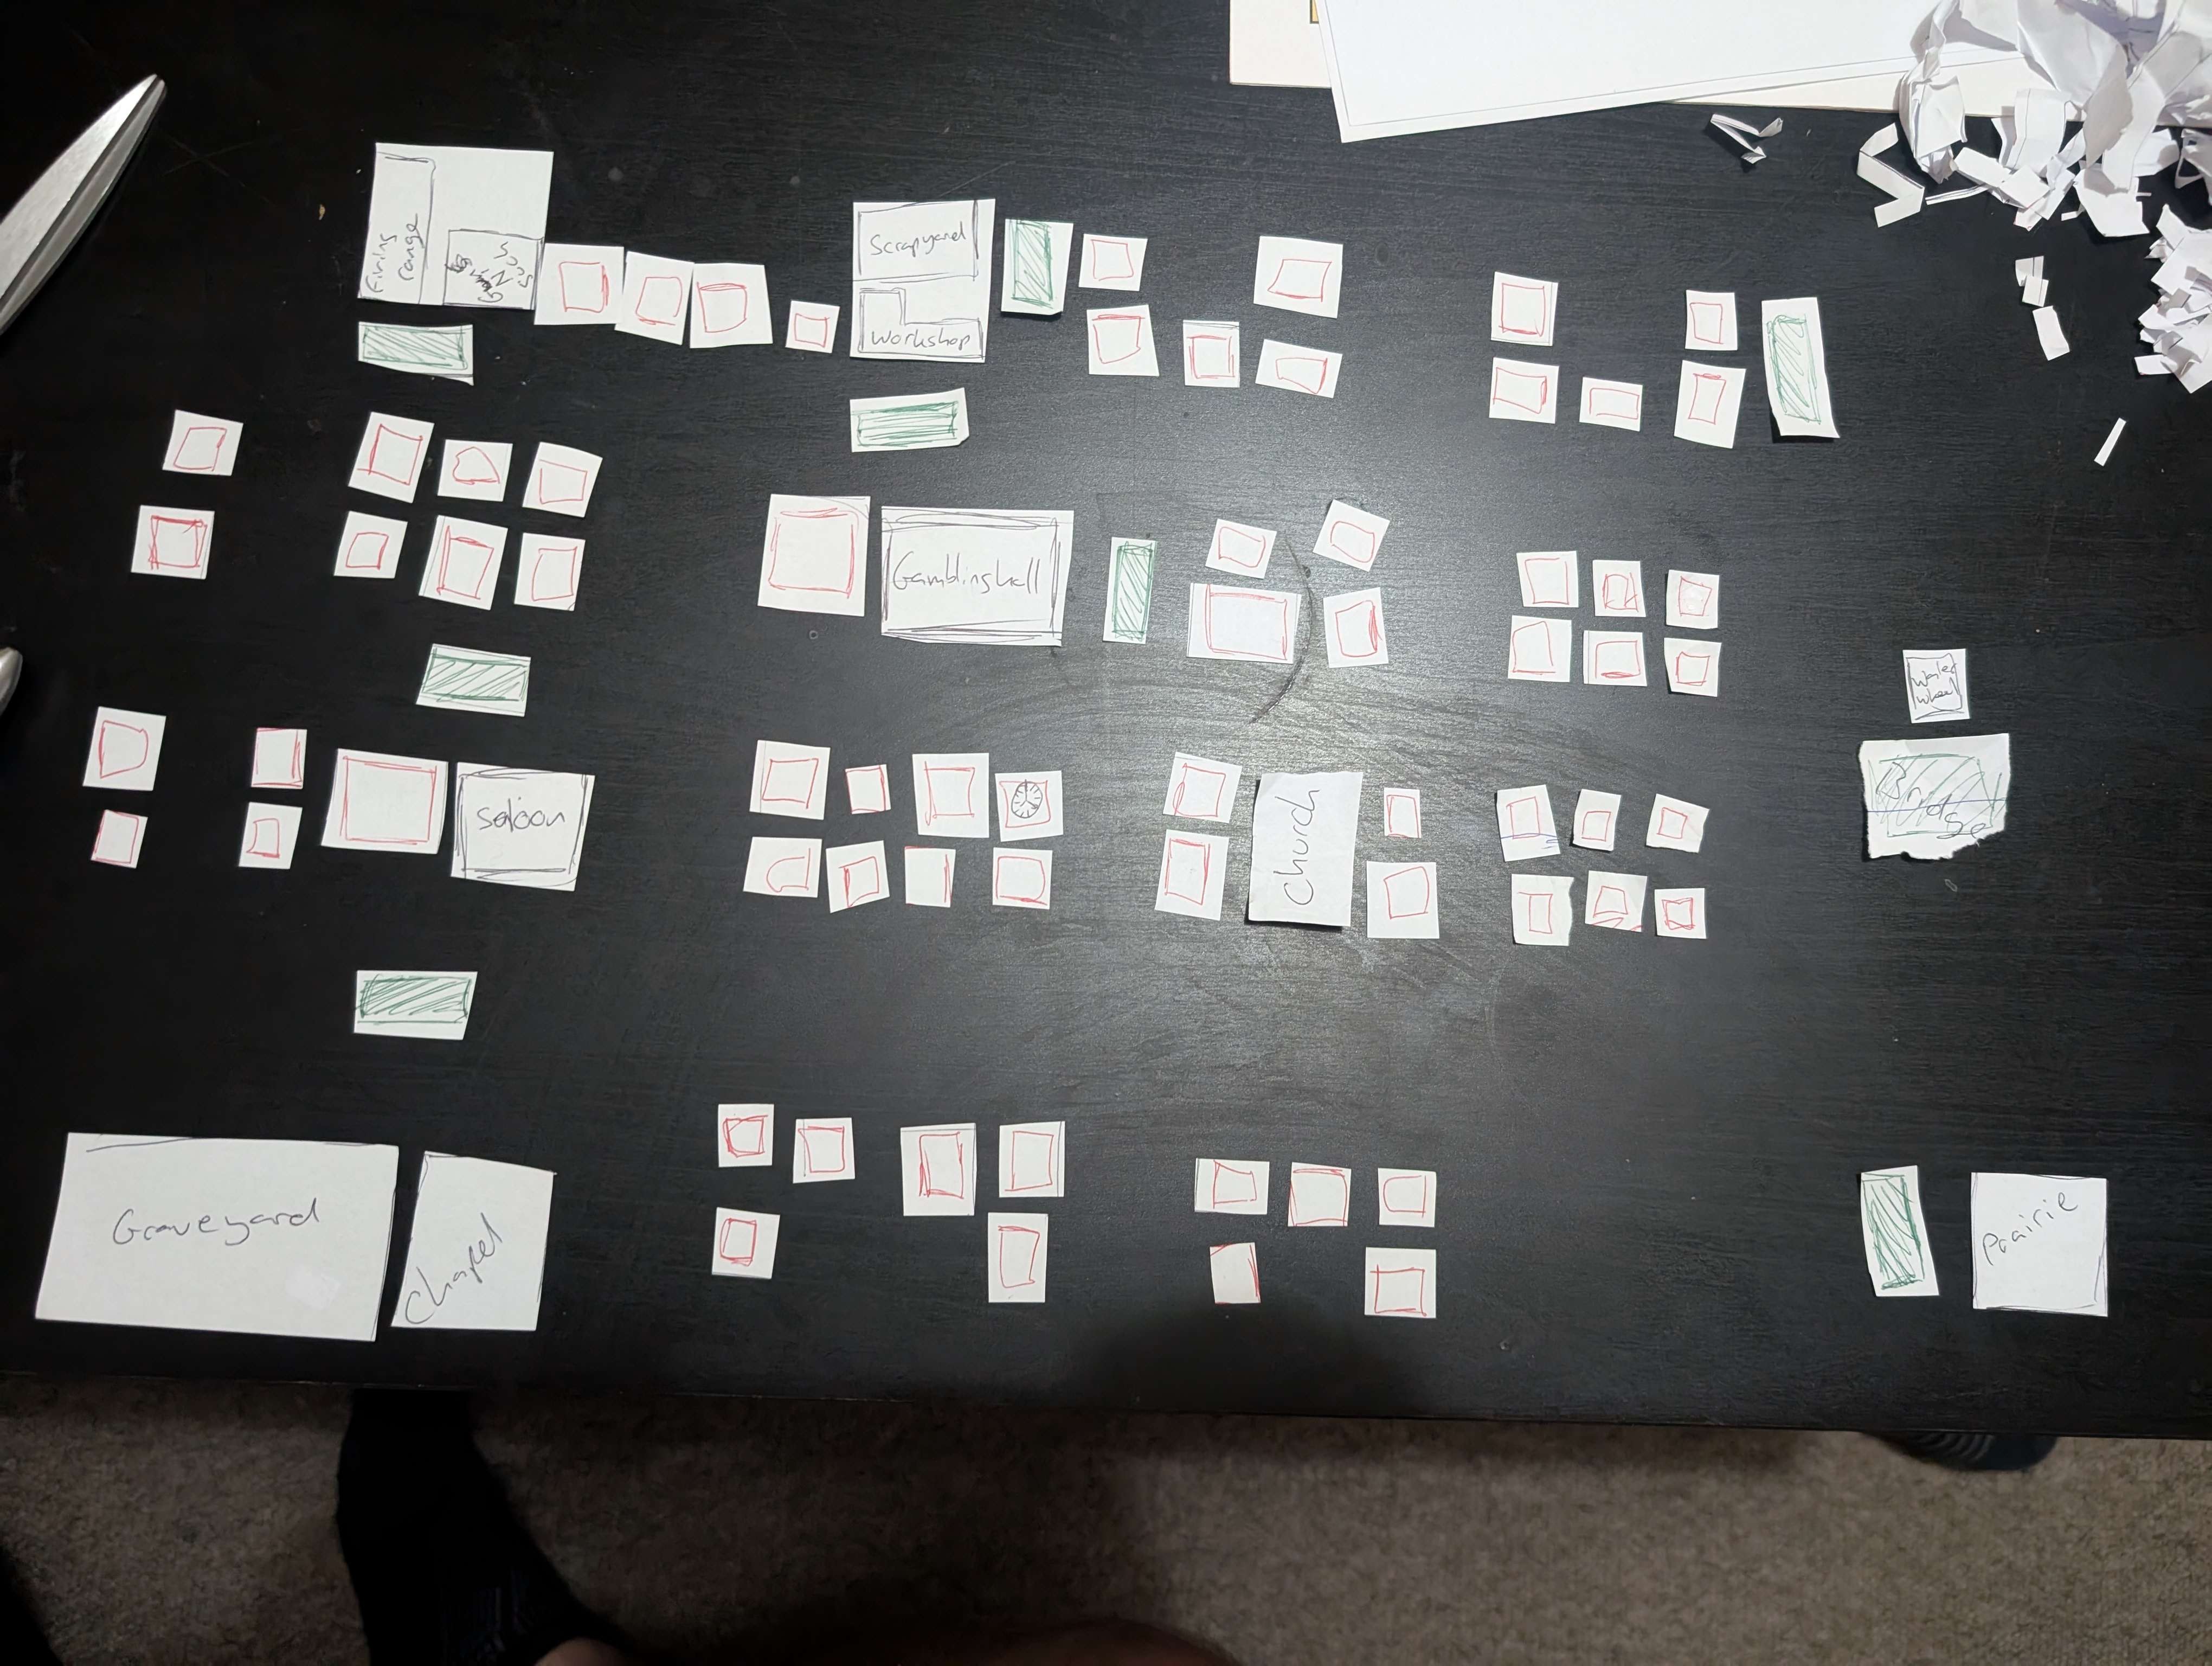 Firing
range
Guns
Scrapyard
Workshop
Gamblinghall
Water
wheel
Bridge
Saloon
Church
Graveyard
Chapel
Prairie